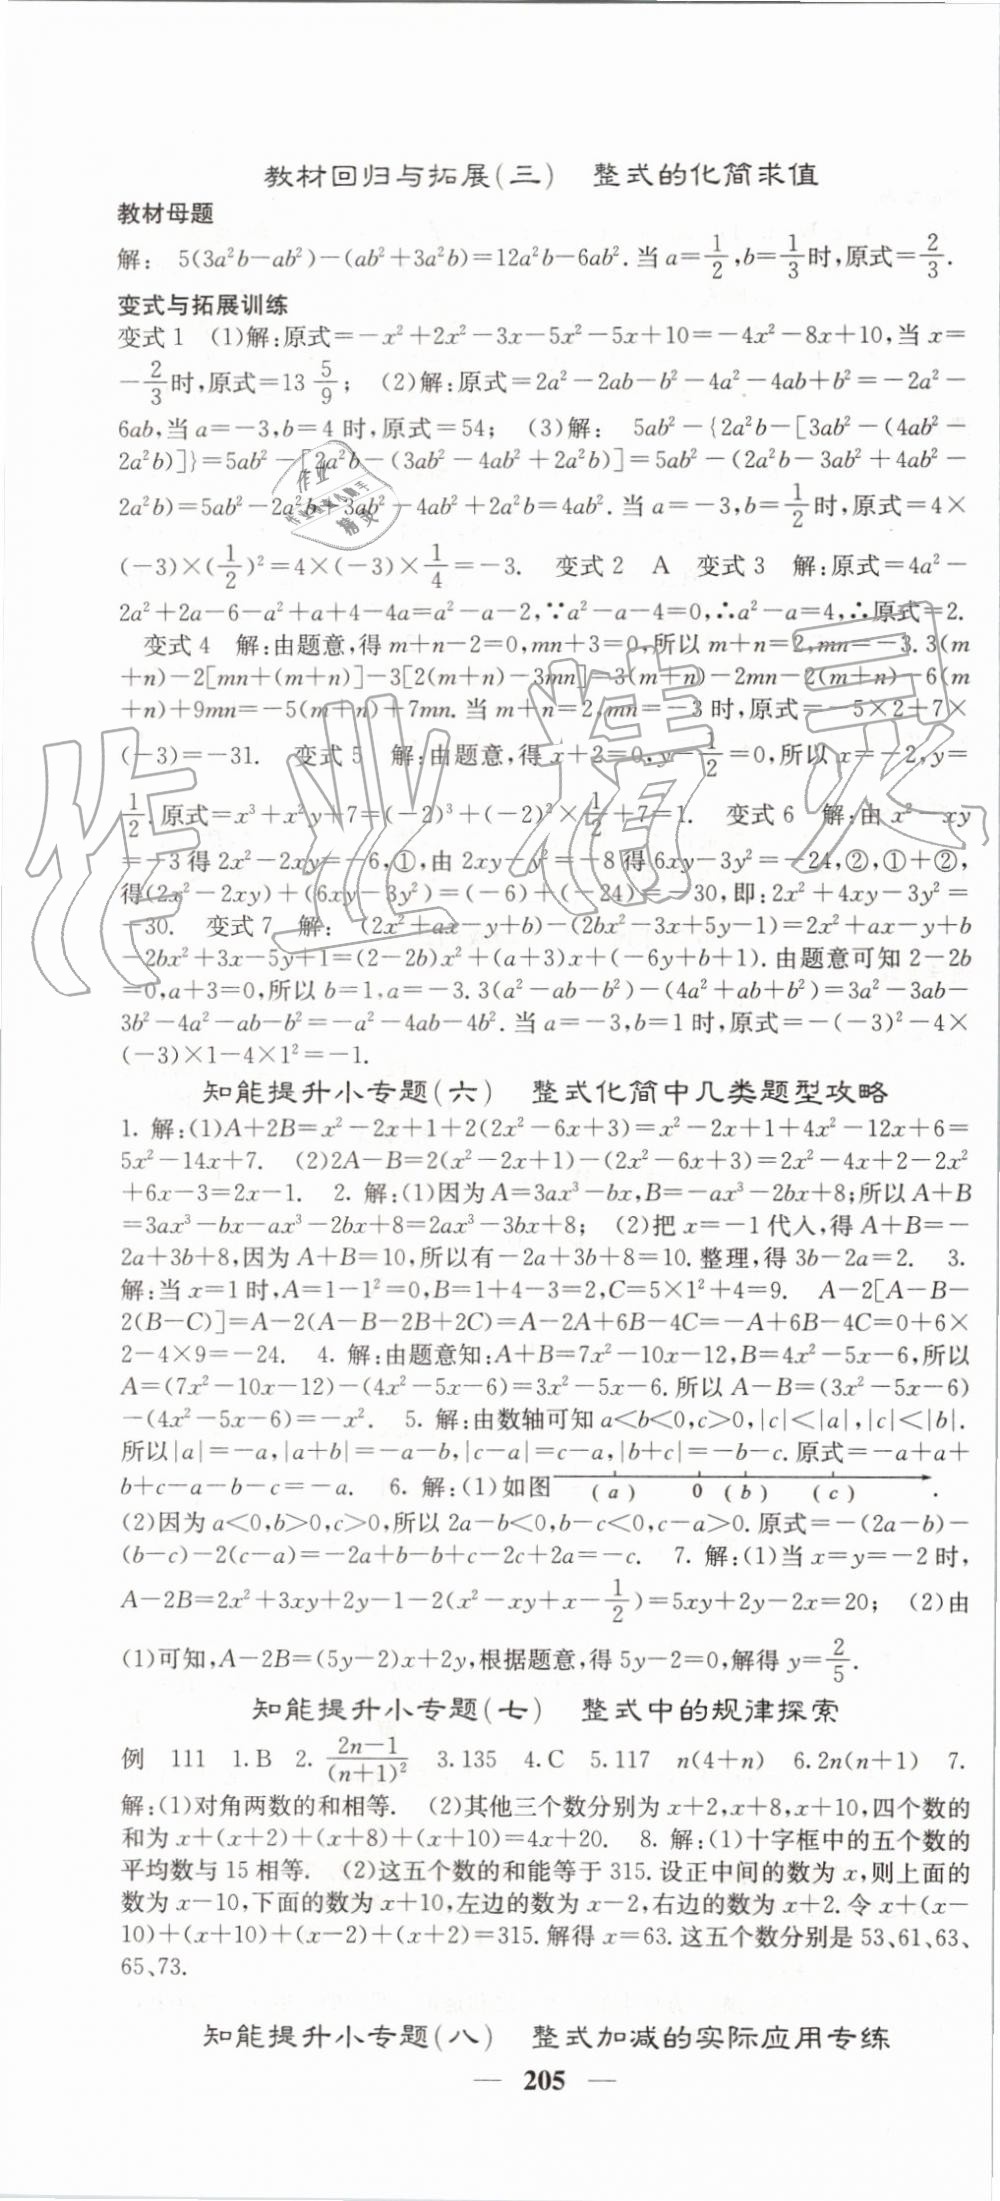 教材回归与拓展(三)　整式的化简求值
教材母题
解： 5(3a²b－ab²)－(ab²＋3a²b)＝12a²b－6ab². 当 a＝1/2,b＝1/3时,原式＝2/3.
变式与拓展训练
变式 1　(1)解:原式＝－x²＋2x²－3x－5x²－5x＋10＝－4x²－8x＋10,当 x＝
－2/3时,原式＝13 5/9； (2)解:原式＝2a²－2ab－b²－4a²－4ab＋b²＝－2a²－
6ab,当 a＝－3,b＝4 时,原式＝54； (3)解： 5ab²－{2a²b－[3ab²－(4ab²－
2a²b)]}＝5ab²－[2a²b－(3ab²－4ab²＋2a²b)]＝5ab²－(2a²b－3ab²＋4ab²－
2a²b)＝5ab²－2a²b＋3ab²－4ab²＋2a²b＝4ab². 当 a＝－3,b＝1/2时,原式＝4×
(－3)×(1/2)²＝4×(－3)×1/4＝－3.　变式 2　A　变式 3　解:原式＝4a²－
2a²＋2a－6－a²＋a＋4－4a＝a²－a－2,∵a²－a－4＝0,∴a²－a＝4,∴原式＝2.
变式 4　解:由题意,得 m＋n－2＝0,mn＋3＝0,所以 m＋n＝2,mn＝－3. 3(m
＋n)－2[mn＋(m＋n)]－3[2(m＋n)－3mn]＝3(m＋n)－2mn－2(m＋n)－6(m
＋n)＋9mn＝－5(m＋n)＋7mn. 当 m＋n＝2,mn＝－3 时,原式＝－5×2＋7×
(－3)＝－31.　变式 5　解:由题意,得 x＋2＝0,y－1/2＝0,所以 x＝－2,y＝
1/2. 原式＝x³＋x²y＋7＝(－2)³＋(－2)²×1/2＋7＝1.　变式 6　解:由 x²－xy
＝－3 得 2x²－2xy＝－6,①,由 2xy－y²＝－8 得 6xy－3y²＝－24,②,①＋②,
得(2x²－2xy)＋(6xy－3y²)＝(－6)＋(－24)＝－30,即:2x²＋4xy－3y²＝
－30.　变式 7　解： (2x²＋ax－y＋b)－(2bx²－3x＋5y－1)＝2x²＋ax－y＋b
－2bx²＋3x－5y＋1＝(2－2b)x²＋(a＋3)x＋(－6y＋b＋1). 由题意可知 2－2b
＝0,a＋3＝0,所以 b＝1,a＝－3. 3(a²－ab－b²)－(4a²＋ab＋b²)＝3a²－3ab－
3b²－4a²－ab－b²＝－a²－4ab－4b². 当 a＝－3,b＝1 时,原式＝－(－3)²－4×
(－3)×1－4×1²＝－1.
知能提升小专题(六)　整式化简中几类题型攻略
1. 解:(1)A＋2B＝x²－2x＋1＋2(2x²－6x＋3)＝x²－2x＋1＋4x²－12x＋6＝
5x²－14x＋7.　(2)2A－B＝2(x²－2x＋1)－(2x²－6x＋3)＝2x²－4x＋2－2x²
＋6x－3＝2x－1.　2. 解:(1)因为 A＝3ax³－bx,B＝－ax³－2bx＋8;所以 A＋B
＝3ax³－bx－ax³－2bx＋8＝2ax³－3bx＋8； (2)把 x＝－1 代入,得 A＋B＝－
2a＋3b＋8,因为 A＋B＝10,所以有－2a＋3b＋8＝10. 整理,得 3b－2a＝2.　3.
解:当 x＝1 时,A＝1－1²＝0,B＝1＋4－3＝2,C＝5×1²＋4＝9.　A－2[A－B－
2(B－C)]＝A－2(A－B－2B＋2C)＝A－2A＋6B－4C＝－A＋6B－4C＝0＋6×
2－4×9＝－24.　4. 解:由题意知:A＋B＝7x²－10x－12,B＝4x²－5x－6,所以
A＝(7x²－10x－12)－(4x²－5x－6)＝3x²－5x－6. 所以 A－B＝(3x²－5x－6)
－(4x²－5x－6)＝－x².　5. 解:由数轴可知 a＜b＜0,c＞0,|c|＜|a|,|c|＜|b|.
所以|a|＝－a,|a＋b|＝－a－b,|c－a|＝c－a,|b＋c|＝－b－c. 原式＝－a＋a＋
b＋c－a－b－c＝－a.　6. 解:(1)如图 (a) 0 (b) (c) .
(2)因为 a＜0,b＞0,c＞0,所以 2a－b＜0,b－c＜0,c－a＞0. 原式＝－(2a－b)－
(b－c)－2(c－a)＝－2a＋b－b＋c－2c＋2a＝－c.　7. 解:(1)当 x＝y＝－2 时,
A－2B＝2x²＋3xy＋2y－1－2(x²－xy＋x－1/2)＝5xy＋2y－2x＝20； (2)由
(1)可知,A－2B＝(5y－2)x＋2y,根据题意,得 5y－2＝0,解得 y＝2/5.
知能提升小专题(七)　整式中的规律探索
例　111　1. B　2. (2n－1)/(n＋1)²　3. 135　4. C　5. 117　n(4＋n)　6. 2n(n＋1)　7.
解:(1)对角两数的和相等.　(2)其他三个数分别为 x＋2,x＋8,x＋10,四个数的
和为 x＋(x＋2)＋(x＋8)＋(x＋10)＝4x＋20.　8. 解:(1)十字框中的五个数的
平均数与 15 相等.　(2)这五个数的和能等于 315. 设正中间的数为 x,则上面的
数为 x－10,下面的数为 x＋10,左边的数为 x－2,右边的数为 x＋2. 令 x＋(x－
10)＋(x＋10)＋(x－2)＋(x＋2)＝315. 解得 x＝63. 这五个数分别是 53、61、63、
65、73.
知能提升小专题(八)　整式加减的实际应用专练
— 205 —
作业精灵